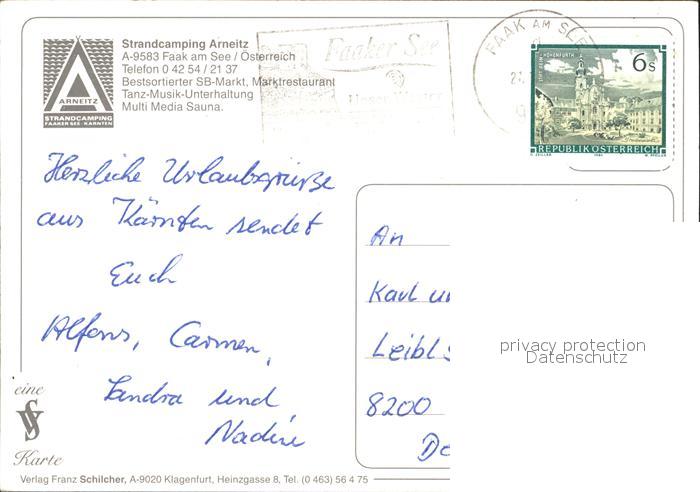 Strandcamping Arneitz
A-9583 Faak am See / Österreich
Telefon 0 42 54 / 21 37
Bestsortierter SB-Markt, Marktrestaurant
Tanz-Musik-Unterhaltung
Multi Media Sauna.
ARNEITZ
STRANDCAMPING
FAAKER SEE · KÄRNTEN
Faaker See
FAAK AM SEE
STIFT REIN-HOHENFURTH
6 S
REPUBLIK ÖSTERREICH
Herzliche Urlaubsgrüße
aus Kärnten sendet
Euch
Alfons, Carmen,
Sandra und
Nadine
An
Karl
Leibl
8200
privacy protection
Datenschutz
eine
Karte
Verlag Franz Schilcher, A-9020 Klagenfurt, Heinzgasse 8, Tel. (0 463) 56 4 75